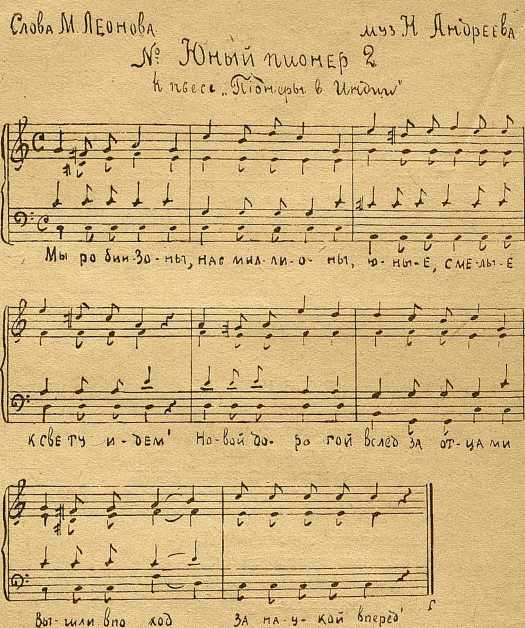 Слова М. Леонова
муз Н Андреева
№ Юный пионер 2
к пьесе „Піонеры в Индии"
Мы ро бин-зо-ны, нас мил-ли-о-ны, ю-ны-е, сме-лы-е
к све ту и-дем' Но-вой до-ро гой вслед за от-ца ми
вы-шли в по ход за на-у-кой вперёд'